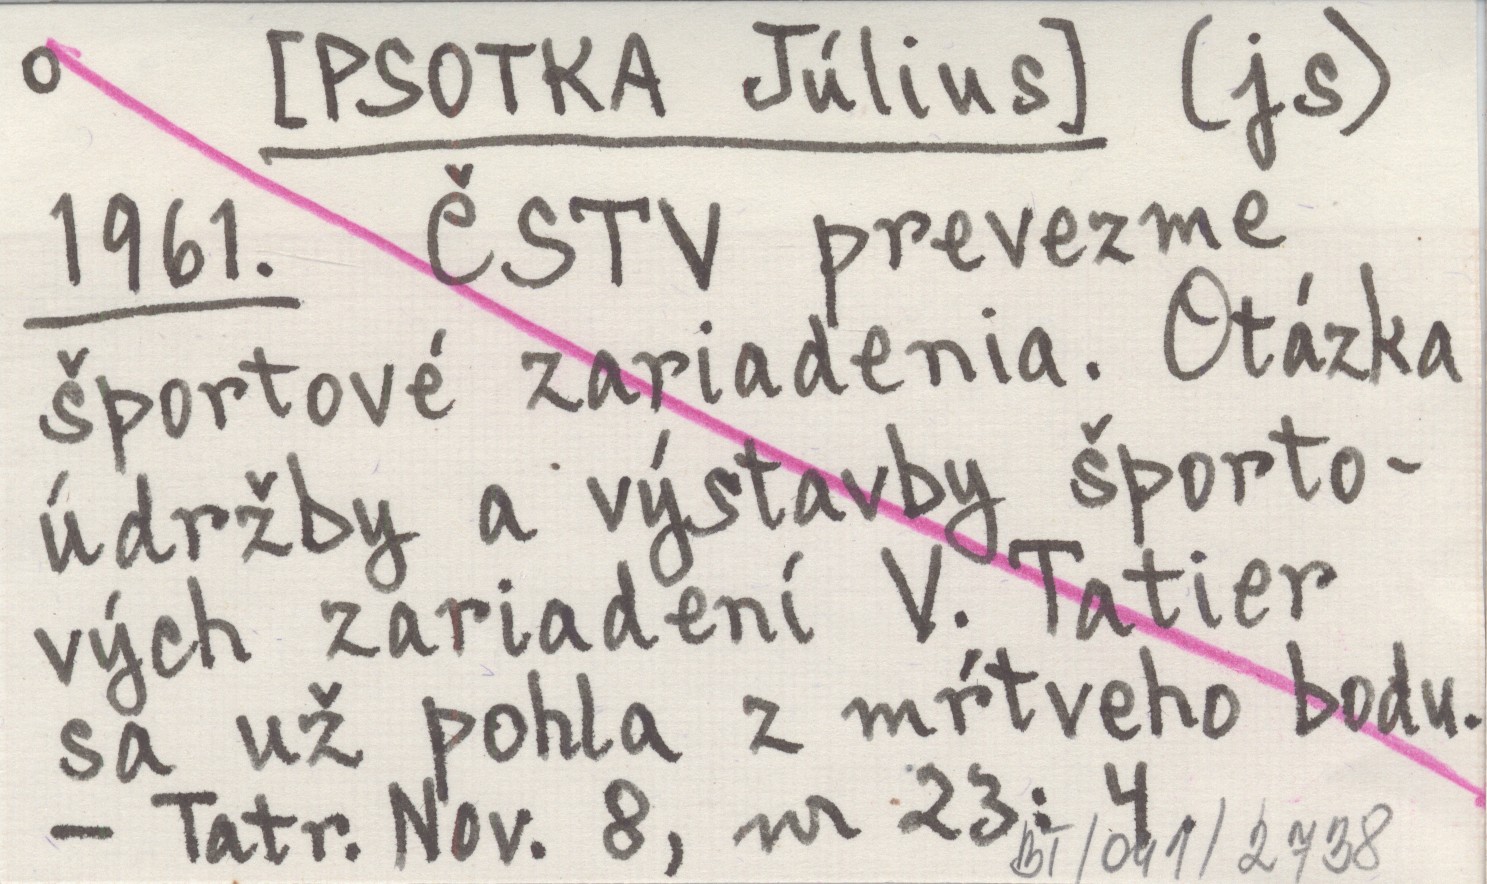 o [PSOTKA Július] (js)
1961. ČSTV prevezme
športové zariadenia. Otázka
údržby a výstavby športo-
vých zariadení V. Tatier
sa už pohla z mŕtveho bodu.
— Tatr. Nov. 8, nr 23: 4.
BT/041/2738